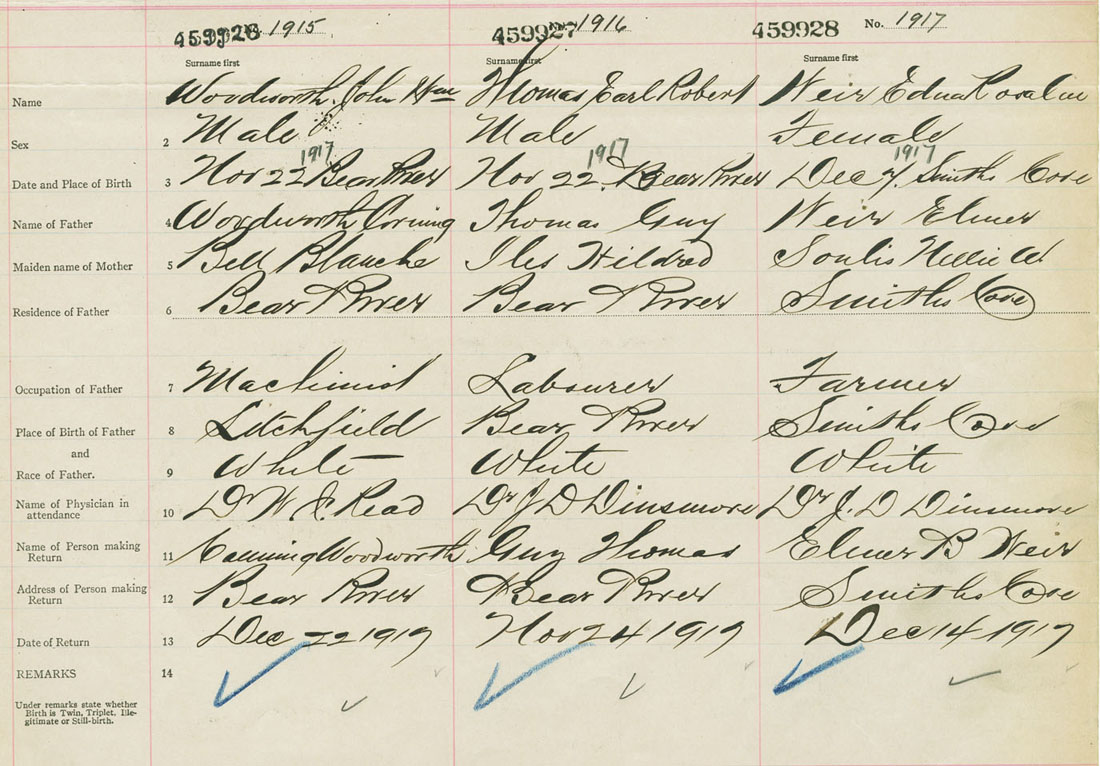 459926 1915 459927 1916 459928 No. 1917
Surname first Surname first Surname first
Name Woodworth John Wm Thomas Earl Robert Weir Edna Rosaline
Sex 2 Male Male Female
1917 1917 1917
Date and Place of Birth 3 Nov 22 Bear River Nov 22 Bear River Dec 7 Smiths Cove
Name of Father 4 Woodworth Thomas Guy Weir Elmer
Maiden name of Mother 5 Bell Blanche Iles Hildred Soulis Nellie
Residence of Father 6 Bear River Bear River Smiths Cove
Occupation of Father 7 Machinist Labourer Farmer
Place of Birth of Father 8 Litchfield Bear River Smiths Cove
and
Race of Father. 9 White White White
Name of Physician in
attendance 10 Dr Read Dr J D Dinsmore Dr J. D Dinsmore
Name of Person making
Return 11 Woodworth Guy Thomas Elmer B Weir
Address of Person making
Return 12 Bear River Bear River Smiths Cove
Date of Return 13 Dec 22 1917 Nov 24 1917 Dec 14 1917
REMARKS 14
Under remarks state whether
Birth is Twin, Triplet, Ille-
gitimate or Still-birth.